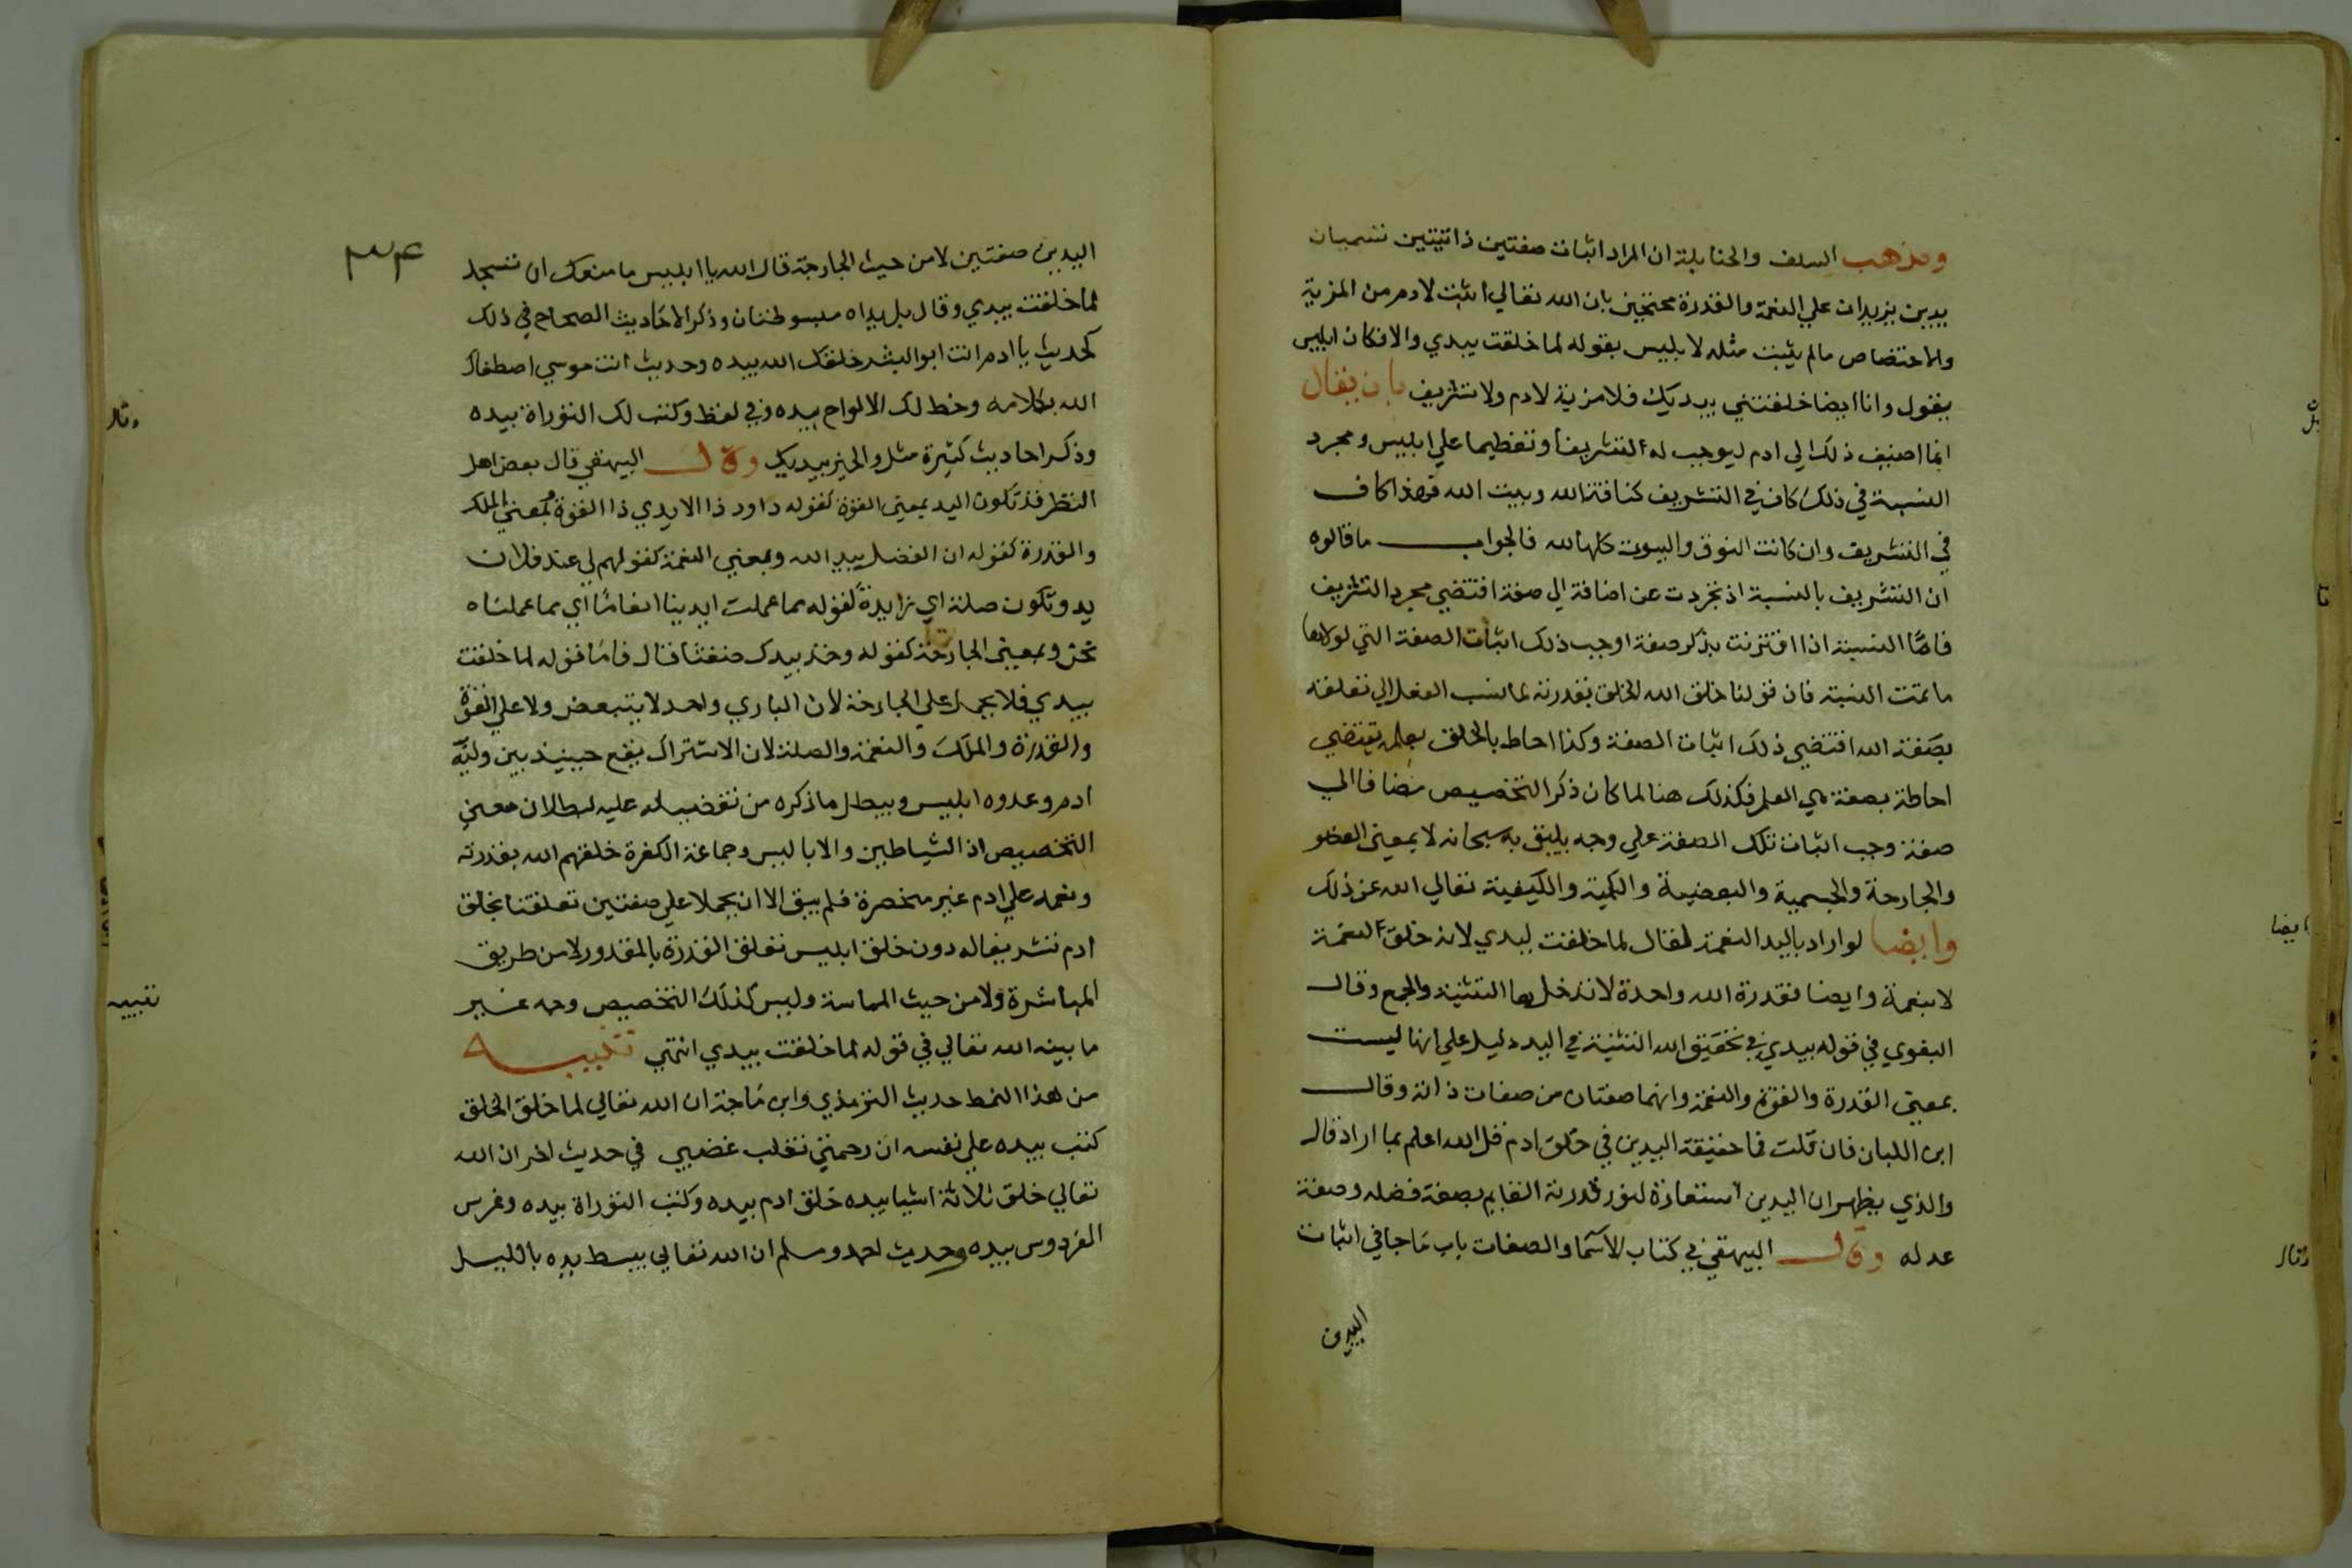 ومذهب السلف والحنابلة ان المراد اثبات صفتين ذاتيتين تسميان
يدين يزيدان علي النعمة والقدرة محتجين بان الله تعالي اثبت لادم من المزية
والاختصاص مالم يثبت مثله لابليس بقوله لما خلقت بيدي والا فكان ابليس
يقول وانا ايضا خلقتني بيديك فلا مزية لادم ولا تشريف بان يقال
انما اضيف ذلك الي ادم ليوجب له التشريفا وتعظيما علي ابليس ومجرد
النسبة في ذلك كاف في التشريف كناقة الله وبيت الله فهذا كاف
في التشريف وان كانت النوق والبيوت كلها لله فالجواب ما قالوه
ان التشريف بالنسبة اذ تجردت عن اضافة الي صفة اقتضي مجرد التشريف
فاما النسبة اذا اقترنت بذكر صفة اوجب ذلك اثبات الصفة التي لولاها
ما تمت النسبة فان قولنا خلق الله الخلق بقدرته لما نسب الفعل الي تعلقه
بصفة الله اقتضي ذلك اثبات الصفة وكذا احاط بالخلق بعلمه يقتضي
احاطة بصفة هي العلم فكذلك هنا لما كان ذكر التخصيص مضافا الي
صفة وجب اثبات تلك الصفة علي وجه يليق به سبحانه لا بمعني العضو
والجارحة والجسمية والبعضية والكمية والكيفية تعالي الله عن ذلك
وايضا لو اراد باليد النعمة لقال لما خلقت ليدي لانه خلق لنعمة
لا بنعمة وايضا فقدرة الله واحدة لا تدخلها التثنية والجمع وقال
البغوي في قوله بيدي في تحقيق الله التثنية في اليد دليل علي انها ليست
بمعني القدرة والقوة والنعمة وانهما صفتان من صفات ذاته وقال
ابن اللبان فان قلت فما حقيقة اليدين في خلق ادم قل الله اعلم بما اراد قال
والذي يظهر ان اليدين استعارة لنور قدرته القايم بصفة فضله وصفة
عدله وقال البيهقي في كتاب الاسما والصفات باب ما جا في اثبات
اليدين
ايضا
وقال
٣٤
اليدين صفتين لا من حيث الجارحة قال الله يا ابليس ما منعك ان تسجد
لما خلقت بيدي وقال بل يداه مبسوطتان وذكر الاحاديث الصحاح في ذلك
كحديث يا ادم انت ابو البشر خلقك الله بيده وحديث انت موسي اصطفاك
الله بكلامه وخط لك الالواح بيده وفي لفظ وكتب لك التوراة بيده
وذكر احاديث كثيرة مثل والخير بيديك وقال البيهقي قال بعض اهل
النظر قد تكون اليد بمعني القوة كقوله داود ذا الايدي ذا القوة وبمعني الملك
والقدرة كقوله ان الفضل بيد الله وبمعني النعمة كقولهم لي عند فلان
يد وتكون صلة اي زايدة كقوله مما عملت ايدينا انعاما اي مما عملناه
نحن وبمعني الجارحة كقوله وخذ بيدك ضغثا قال فاما قوله لما خلقت
بيدي فلا يحمل علي الجارحة لان الباري واحد لا يتبعض ولا علي القوة
والقدرة والملك والنعمة والصلة لان الاشتراك يقع حينيذ بين وليه
ادم وعدوه ابليس ويبطل ما ذكره من تفضيله عليه لبطلان معني
التخصيص اذ الشياطين والاباليس وجماعة الكفرة خلقهم الله بقدرته
ونعمه علي ادم غير منحصرة فلم يبق الا ان يحملا علي صفتين تعلقتا بخلق
ادم تشريفا له دون خلق ابليس تعلق القدرة بالمقدور لا من طريق
المباشرة ولا من حيث المماسة وليس لذلك التخصيص وجه غير
ما بينه الله تعالي في قوله لما خلقت بيدي انتهي تنبيه
من هذا النمط حديث الترمذي وابن ماجة ان الله تعالي لما خلق الخلق
كتب بيده علي نفسه ان رحمتي تغلب غضبي في حديث اخر ان الله
تعالي خلق ثلاثة اشيا بيده خلق ادم بيده وكتب التوراة بيده وغرس
الفردوس بيده وحديث احمد ومسلم ان الله تعالي يبسط يده بالليل
وقال
تنبيه